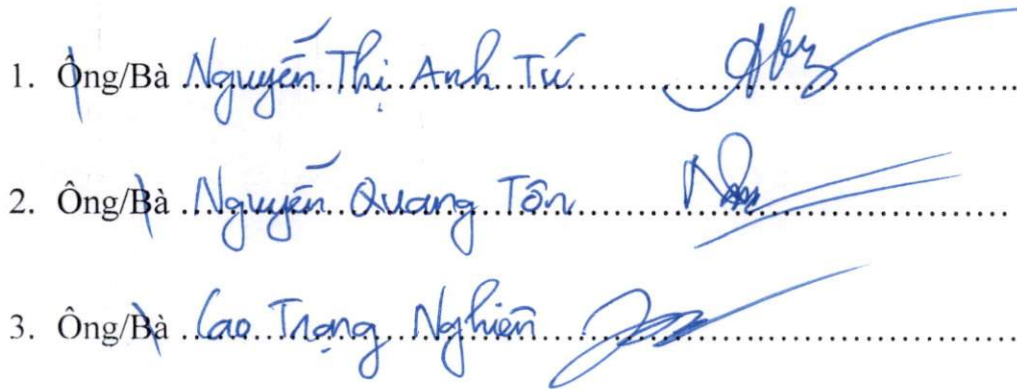 1. Ông/Bà Nguyễn Thị Anh Tú
2. Ông/Bà Nguyễn Quang Tôn
3. Ông/Bà Cao Trọng Nghiên